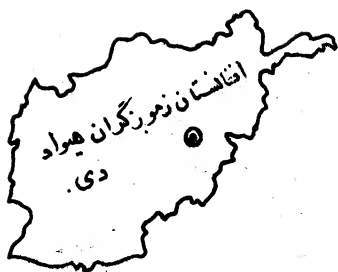 افغانستان زموږ گران هیواد
دی.